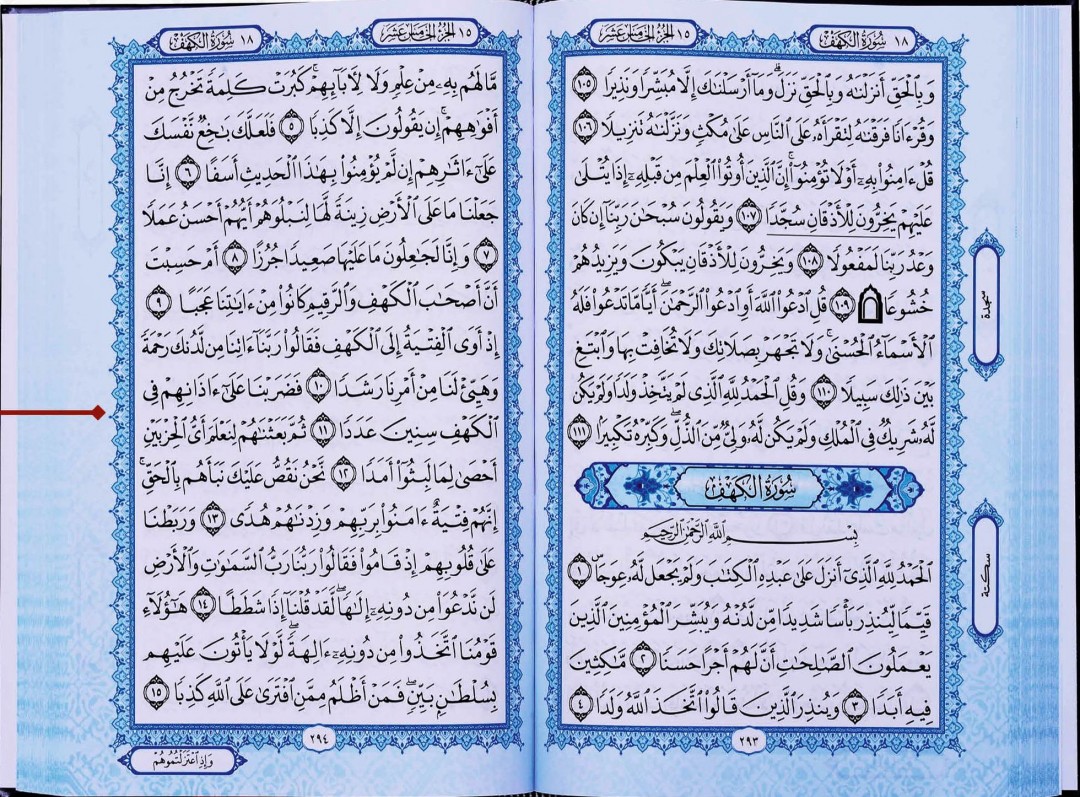 ١٨ سُورَةُ الكَهْفِ
١٥ الجُزْءُ الخَامِسَ عَشَرَ
وَبِالْحَقِّ أَنزَلْنَٰهُ وَبِالْحَقِّ نَزَلَ ۗ وَمَآ أَرْسَلْنَٰكَ إِلَّا مُبَشِّرًا وَنَذِيرًا ١٠٥
وَقُرْءَانًا فَرَقْنَٰهُ لِتَقْرَأَهُۥ عَلَى ٱلنَّاسِ عَلَىٰ مُكْثٍ وَنَزَّلْنَٰهُ تَنزِيلًا ١٠٦
قُلْ ءَامِنُوا۟ بِهِۦٓ أَوْ لَا تُؤْمِنُوٓا۟ ۚ إِنَّ ٱلَّذِينَ أُوتُوا۟ ٱلْعِلْمَ مِن قَبْلِهِۦٓ إِذَا يُتْلَىٰ
عَلَيْهِمْ يَخِرُّونَ لِلْأَذْقَانِ سُجَّدًا ١٠٧ وَيَقُولُونَ سُبْحَٰنَ رَبِّنَآ إِن كَانَ
وَعْدُ رَبِّنَا لَمَفْعُولًا ١٠٨ وَيَخِرُّونَ لِلْأَذْقَانِ يَبْكُونَ وَيَزِيدُهُمْ
خُشُوعًا ١٠٩ قُلِ ٱدْعُوا۟ ٱللَّهَ أَوِ ٱدْعُوا۟ ٱلرَّحْمَٰنَ ۖ أَيًّا مَّا تَدْعُوا۟ فَلَهُ
ٱلْأَسْمَآءُ ٱلْحُسْنَىٰ ۚ وَلَا تَجْهَرْ بِصَلَاتِكَ وَلَا تُخَافِتْ بِهَا وَٱبْتَغِ
بَيْنَ ذَٰلِكَ سَبِيلًا ١١٠ وَقُلِ ٱلْحَمْدُ لِلَّهِ ٱلَّذِى لَمْ يَتَّخِذْ وَلَدًا وَلَمْ يَكُن
لَّهُۥ شَرِيكٌ فِى ٱلْمُلْكِ وَلَمْ يَكُن لَّهُۥ وَلِىٌّ مِّنَ ٱلذُّلِّ ۖ وَكَبِّرْهُ تَكْبِيرًۢا ١١١
سُورَةُ الكَهْفِ
بِسْمِ ٱللَّهِ ٱلرَّحْمَٰنِ ٱلرَّحِيمِ
ٱلْحَمْدُ لِلَّهِ ٱلَّذِىٓ أَنزَلَ عَلَىٰ عَبْدِهِ ٱلْكِتَٰبَ وَلَمْ يَجْعَل لَّهُۥ عِوَجَا ۜ ١
قَيِّمًا لِّيُنذِرَ بَأْسًا شَدِيدًا مِّن لَّدُنْهُ وَيُبَشِّرَ ٱلْمُؤْمِنِينَ ٱلَّذِينَ
يَعْمَلُونَ ٱلصَّٰلِحَٰتِ أَنَّ لَهُمْ أَجْرًا حَسَنًا ٢ مَّٰكِثِينَ
فِيهِ أَبَدًا ٣ وَيُنذِرَ ٱلَّذِينَ قَالُوا۟ ٱتَّخَذَ ٱللَّهُ وَلَدًا ٤
سجدة
سكتة
٢٩٣
١٥ الجُزْءُ الخَامِسَ عَشَرَ
١٨ سُورَةُ الكَهْفِ
مَّا لَهُم بِهِۦ مِنْ عِلْمٍ وَلَا لِـَٔابَآئِهِمْ ۚ كَبُرَتْ كَلِمَةً تَخْرُجُ مِنْ
أَفْوَٰهِهِمْ ۚ إِن يَقُولُونَ إِلَّا كَذِبًا ٥ فَلَعَلَّكَ بَٰخِعٌ نَّفْسَكَ
عَلَىٰٓ ءَاثَٰرِهِمْ إِن لَّمْ يُؤْمِنُوا۟ بِهَٰذَا ٱلْحَدِيثِ أَسَفًا ٦ إِنَّا
جَعَلْنَا مَا عَلَى ٱلْأَرْضِ زِينَةً لَّهَا لِنَبْلُوَهُمْ أَيُّهُمْ أَحْسَنُ عَمَلًا
٧ وَإِنَّا لَجَٰعِلُونَ مَا عَلَيْهَا صَعِيدًا جُرُزًا ٨ أَمْ حَسِبْتَ
أَنَّ أَصْحَٰبَ ٱلْكَهْفِ وَٱلرَّقِيمِ كَانُوا۟ مِنْ ءَايَٰتِنَا عَجَبًا ٩
إِذْ أَوَى ٱلْفِتْيَةُ إِلَى ٱلْكَهْفِ فَقَالُوا۟ رَبَّنَآ ءَاتِنَا مِن لَّدُنكَ رَحْمَةً
وَهَيِّئْ لَنَا مِنْ أَمْرِنَا رَشَدًا ١٠ فَضَرَبْنَا عَلَىٰٓ ءَاذَانِهِمْ فِى
ٱلْكَهْفِ سِنِينَ عَدَدًا ١١ ثُمَّ بَعَثْنَٰهُمْ لِنَعْلَمَ أَىُّ ٱلْحِزْبَيْنِ
أَحْصَىٰ لِمَا لَبِثُوٓا۟ أَمَدًا ١٢ نَّحْنُ نَقُصُّ عَلَيْكَ نَبَأَهُم بِٱلْحَقِّ ۚ
إِنَّهُمْ فِتْيَةٌ ءَامَنُوا۟ بِرَبِّهِمْ وَزِدْنَٰهُمْ هُدًى ١٣ وَرَبَطْنَا
عَلَىٰ قُلُوبِهِمْ إِذْ قَامُوا۟ فَقَالُوا۟ رَبُّنَا رَبُّ ٱلسَّمَٰوَٰتِ وَٱلْأَرْضِ
لَن نَّدْعُوَا۟ مِن دُونِهِۦٓ إِلَٰهًا ۖ لَّقَدْ قُلْنَآ إِذًا شَطَطًا ١٤ هَٰٓؤُلَآءِ
قَوْمُنَا ٱتَّخَذُوا۟ مِن دُونِهِۦٓ ءَالِهَةً ۖ لَّوْلَا يَأْتُونَ عَلَيْهِم
بِسُلْطَٰنٍۭ بَيِّنٍ ۖ فَمَنْ أَظْلَمُ مِمَّنِ ٱفْتَرَىٰ عَلَى ٱللَّهِ كَذِبًا ١٥
٢٩٤
وَإِذِ ٱعْتَزَلْتُمُوهُمْ